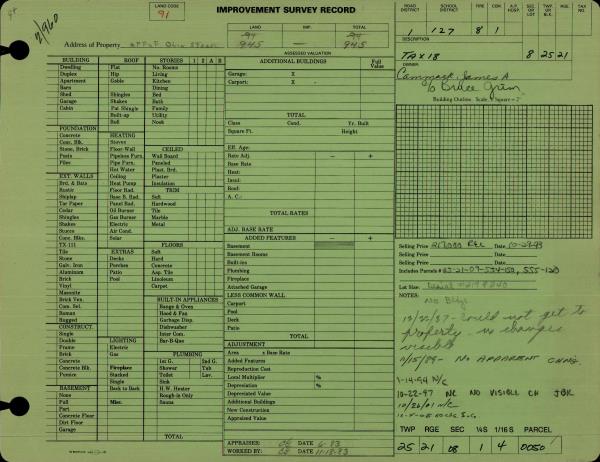 LAND CODE
91
IMPROVEMENT SURVEY RECORD
LAND IMP. TOTAL
945 — 945
ASSESSED VALUATION
Address of Property
ROAD DISTRICT SCHOOL DISTRICT FIRE CEM. A.P. HOSP. SEC. OR LOT TWP. OR BLK. RGE. TAX NO.
1 127 8 1
DESCRIPTION
TAX 18 8 25 21
OWNER
Cammack, James A
Building Outline
BUILDING ROOF STORIES 1 2 A B
Dwelling Flat No. Rooms
Duplex Hip Living
Apartment Gable Kitchen
Barn Dining
Shed Shingles Bed
Garage Shakes Bath
Cabin Pat Shingle Family
Built-up Utility
Roll Nook
FOUNDATION
Concrete HEATING
Conc. Blk. Stoves CEILED
Stone, Brick Floor-Wall Wall Board
Posts Pipeless Furn. Paneled
Piles Pipe Furn. Plast. Brd.
Hot Water Plaster
EXT. WALLS Ceiling Insulation
Brd. & Bats Heat Pump
Rustic Floor Rad. TRIM
Shiplap Base B. Rad. Soft
Tar Paper Panel Rad. Hardwood
Cedar Oil Burner Tile
Shingles Gas Burner Marble
Shakes Electric Metal
Stucco Air Cond.
Conc. Blks. Solar
TX-111 FLOORS
Tile EXTRAS Soft
Stone Decks Hard
Galv. Iron Porches Concrete
Aluminum Patio Asp. Tile
Brick Pool Linoleum
Vinyl Carpet
Masonite
Brick Ven. BUILT-IN APPLIANCES
Com. Sel. Range & Oven
Roman Hood & Fan
Rugged Garbage Disp.
CONSTRUCT. Dishwasher
Single Inter Com.
Double LIGHTING Bar-B-Que
Frame Electric
Brick Gas PLUMBING
Concrete 1st G. 2nd G.
Concrete Blk. Fireplace Shower Tub
Pumice Stacked Toilet Lav.
Single Sink
BASEMENT Back to Back H.W. Heater
None Rough-in Only
Full Misc. Sauna
Part
Concrete Floor
Dirt Floor
Garage TOTAL
ADDITIONAL BUILDINGS Full Value
Garage: X
Carport: X
TOTAL
Class Cond. Yr. Built
Square Ft. Height
Eff. Age:
Rate Adj. — +
Base Rate
Heat:
Insul:
Roof:
A. C.:
TOTAL RATES
ADJ. BASE RATE
ADDED FEATURES — +
Basement
Basement Rooms
Built-ins
Plumbing
Fireplace
Attached Garage
LESS COMMON WALL
Carport
Pool
Deck
Patio
TOTAL
ADJUSTMENT
Area x Base Rate
Added Features
Reproduction Cost
Local Multiplier %
Depreciation %
Depreciated Value
Additional Buildings
New Construction
Appraised Value
APPRAISED: DATE 6-83
WORKED BY: DATE 11-18-83
Selling Price Date 10-29-93
Selling Price Date
Selling Price Date
Includes Parcels #
Lot Size:
NOTES:
No Bldg
10/22/87 - Could not get to
property - no changes
visible
NO APPARENT CHNG.
1-14-94 N/C
10-22-97 NC NO VISIBLE CH JBK
10/26/01 N/C
TWP RGE SEC ¼S 1/16 S PARCEL
25 21 08 1 4 0050